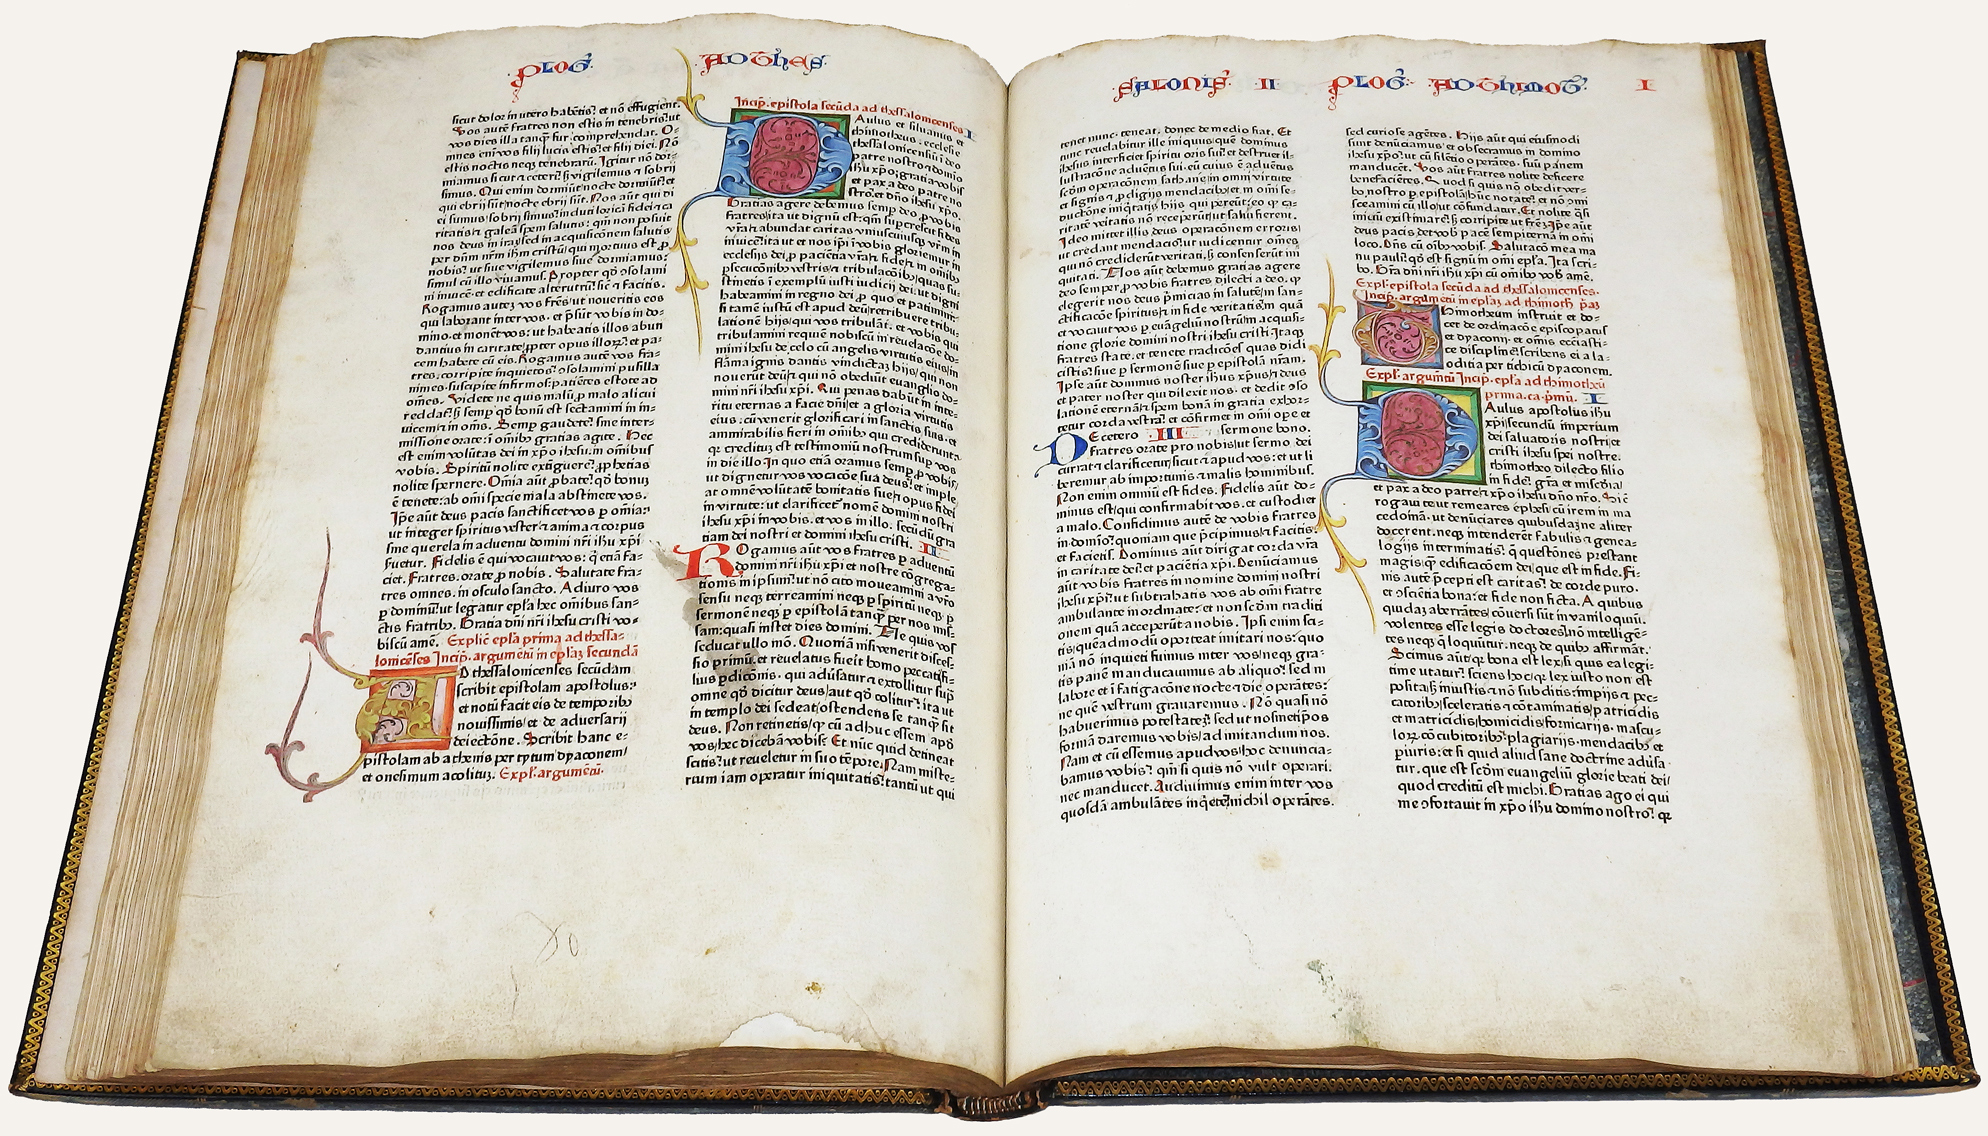 PLOG̃ AD THES
sicut dolor in utero habētis? et nō effugient.
Vos autē fratres non estis in tenebris: ut
vos dies illa tanq̄ fur comprehendat. O-
mnes eni vos filij lucis estis: et filij diei. Nō
estis noctis neq; tenebrarū. Igitur nō dor-
miamus sicut et ceteri: sʒ vigilemus et sobrij
simus. Qui enim dormiūt nocte dormiūt: et
qui ebrij sūt nocte ebrij sūt. Nos aūt qui di
ei sumus: sobrij simus: induti loricā fidei et ca
ritatis: et galeā spem salutis: qm̄ non posuit
nos deus in irā: sed in acquisicōnem salutis
per dm̄ nr̄m ihm̄ cristū: qui mortuus est p̄
nobis: ut sive vigilemus sive dormiamus:
simul cū illo vivamus. Propter qd̄ ɔsolami
ni invicē: et edificate alterutrū: sic̄ et facitis.
Rogamus autez vos fr̄es: ut noveritis eos
qui laborant inter vos. et p̄sūt vobis in do-
mino. et monēt vos: ut habeatis illos abun
dantius in caritate: ꝓpter opus illoꝝ: et pa-
cem habete cū eis. Rogamus autē vos fra-
tres: corripite inquietos: ɔsolamini pusilla
nimes: suscipite infirmos: patiētes estote ad
om̄es. Videte ne quis malū ꝓ malo alicui
reddat: sʒ semp̄ qd̄ bonū est sectamini in in-
vicem: et in om̄s. Semp gaudete: sine inter-
missione orate: ī om̄ibꝫ gratias agite. Hec
est enim volūtas dei in xp̄o ihesu in omībus
vobis. Spiritū nolite extīguere: ꝓphetias
nolite spernere. Om̄ia aūt ꝓbate: qd̄ bonuz
ē tenete: ab om̄i specie mala abstinete vos.
Ip̄e aūt deus pacis sanctificet vos ꝑ om̄ia:
ut integer spiritus vester et anima et corpus
sine querela in adventu domini nr̄i ihu xp̄i
servetur. Fidelis ē qui vocavit vos: q̄ etiā fa-
ciet. Fratres: orate ꝓ nobis. Salutate fra-
tres omnes. in osculo sancto. Adiuro vos
ꝑ dominū: ut legatur epl̄a hec om̄ibus san-
ctis fratribꝫ. Gratia dn̄i nr̄i ihesu cristi vo-
biscū amē. Explic̄ epl̄a prima ad thessa-
lonicēses Incip̄. argumētū in epl̄aʒ secundā
AD thessalonicenses secūdam
scribit epistolam apostolus:
et notū facit eis de temporibꝫ
novissimis: et de adversarij
deiectōne. Scribit hanc e-
pistolam ab athenis per tytum dyaconem
et onesimum acolitum. Expl̄. argumētū.
Incip̄. epistola secūda ad thessalonicenses I
PAulus et silvanus et
thimotheus. ecclesie
thessalonicensiū ī deo
patre nostro et domīo
ihu xp̄o: gratia vobis
et pax a deo patre no
stro: et dn̄o ihesu xp̄o.
Gratias agere debemus semp̄ deo ꝓ vobis
fratres: ita ut dignū est: qm̄ supcrescit fides
vr̄a: et abundat caritas vniuscuiusq; vr̄m in
invicē: ita ut et nos ip̄i ī vobis gloriemur in
ecclesijs dei: ꝓ paciētia vr̄a: et fide: et in om̄ibꝫ
ꝑsecucōnibꝫ vestris: et tribulacōibꝫ: quas su-
stinetis ī exemplū iusti iudicij dei: ut digni
habeamini in regno dei: ꝓ quo et patimini:
si tamē iustū est apud deū: retribuere tribu-
lationē hijs: qui vos tribulāt. et vobis qui
tribulamini requiē nobiscū in revelacōe do-
mini ihesu de celo cū angelis virtutis eius: in
flāma ignis dantis vindictāʒ hijs: qui non
noverūt deū: et qui nō obediūt evanglio do-
mini nr̄i ihesu xp̄i. Qui penas dabūt in inte-
ritu eternas a facie dn̄i: et a gloria virtutis
eius: cū venerit glorificari in sanctis suis. et
ammirabilis fieri in om̄ibꝫ qui crediderunt:
qꝛ creditū est testimoniū nostrum sup vos
in die illo. In quo etiā oramus semp̄ ꝓ vobis:
ut dignetur vos vocacōe sua deus: et imple
at omnē volūtatē bonitatis sue: et opus fidei
in virtute: ut clarificet̄ nomē domini nostri
ihesu xp̄i in vobis. et vos in illo. secūdū gra
tiam dei nostri et domini ihesu cristi. II
ROgamus aūt vos fratres ꝑ adventū
domini nr̄i ihu xp̄i et nostre cōgrega-
tionis in ip̄sum: ut nō cito moveamini a vr̄o
sensu neq; terreamini neq; ꝑ spiritū neq; ꝑ
sermonē neq; ꝑ epistolā tanq̄ ꝑ nos mis-
sam: quasi instet dies domini. Ne quis vos
seducat ullo mō. Quoniā nisi venerit disces-
sio primū: et revelatus fuerit homo peccati: fi-
lius ꝑdicionis. qui adūsatur et extollitur sup̄
omne qd̄ dicitur deus: aut qd̄ colitur: ita ut
in templo dei sedeat: ostendens se tanq̄ sit
deus. Non retinetis: qꝛ cū adhuc essem apd̄
vos: hec dicebā vobis: Et nūc quid detineat
scitis: ut reveletur in suo tēpore. Nam miste-
rium iam operatur iniquitatis: tantū ut qui
SALONIS II PLOG̃ AD THIMOT̃ I
tenet nunc. teneat. donec de medio fiat. Et
tunc revelabitur ille iniquus: quē dominus
ihesus interficiet spiritu oris sui: et destruet il-
lustracōne adventus sui: eū cuius ē adūētus
scd̄m operacōnem sathane: in omni virtute
et signis et ꝓdigijs mendacibꝫ: et in om̄i se-
ductōne iniq̄tatis hijs qui pereūt: eo qꝛ ca-
ritatē veritatis nō receperūt: ut salvi fierent.
Ideo mittet illis deus operacōnem erroris:
ut credant mendacio: ut iudicentur om̄es
qui nō crediderūt veritati: sʒ consenserūt in
iquitati. Nos aūt debemus gratias agere
deo semper ꝓ vobis fratres dilecti a deo. qꝛ
elegerit nos deus p̄micias in salutē: in san-
ctificacōe spiritus: et in fide veritatis: in quā
et vocavit vos ꝑ evangeliū nostrūm acquisi-
tione glorie domini nostri ihesu cristi. Itaqꝫ
fratres state. et tenete tradicōes quas didi
cistis: sive ꝑ sermonē sive ꝑ epistolā nr̄am.
Ip̄se aūt dominus noster ihus xp̄us: et deus
et pater noster qui dilexit nos. et dedit ɔso
lationē eternā: et spem bonā in gratia exhor-
tetur corda vestra: et cōfirmet in om̄i ope et
sermone bono. III
DE cetero
fratres orate pro nobis: ut sermo dei
currat et clarificetur: sicut et apud vos: et ut li
beremur ab importunis et malis hominibus.
Non enim omniū est fides. Fidelis aūt do-
minus est: qui confirmabit vos. et custodiet
a malo. Confidimus autē de vobis fratres
in domīo: quoniam que p̄cipimus: et facitis
et facietis. Dominus aūt dirigat corda vr̄a
in caritate dei: et paciētia xp̄i. Denūciamus
aūt vobis fratres in nomine domini nostri
ihesu xp̄i: ut subtrahatis vos ab om̄i fratre
ambulante inordinate: et non scd̄m traditi
onem quā acceperūt a nobis. Ipsi enim sci-
tis: quēadmodū oporteat imitari nos: quo
niā nō inquieti fuimus inter vos: neq; gra-
tis panē manducavimus ab aliquo: sed in
labore et ī fatigacōne nocte et die operātes:
ne quē vestrum gravaremus. Nō quasi nō
habuerimus potestatē: sed ut nosmetip̄os
formā daremus vobis: ad imitandum nos.
Nam et cū essemus apud vos: hoc denuncia-
bamus vobis: qm̄ si quis nō vult operari.
nec manducet. Audivimus enim inter vos
quosdā ambulātes inq̄ete: nichil operātes.
sed curiose agētes. Hijs aūt qui eiusmodi
sunt denūciamus: et obsecramus in domino
ihesu xp̄o: ut cū silētio operātes. suū panem
manducēt. Vos aūt fratres nolite deficere
benefaciētes. Quod si quis nō obedit ver-
bo nostro ꝑ epistolā: hūc notate: et ne cōmi
sceamini cū illo: ut cōfundatur. Et nolite q̄si
inimicū existimare: sʒ corripite ut fr̄ez. Ip̄e aūt
deus pacis det vob̄ pacē sempiternā in om̄i
loco. Dn̄s cū oībꝫ vobis. Salutacō mea ma
nu pauli: qd̄ est signū in om̄i epl̄a. Ita scri-
bo. Gr̄a dn̄i nr̄i ihu xp̄i cū om̄ibꝫ vob̄ amē.
Expl̄. epistola secūda ad thessalonicenses.
Incip̄. argumētū in epl̄aʒ ad thimoth̄. p̄aʒ
THimotheum instruit et do-
cet de ordinacōe episcopatus
et dyaconi. et om̄is ecclesiasti-
ce discipline: scribens ei a la-
oditia per tichicū dyaconem.
Expl̄. argumētū Incip̄. epl̄a ad thimotheū
prima. ca. p̄mū. I
PAulus apostolus ihu
xp̄i: secundū imperium
dei salvatoris nostri: et
cristi ihesu spei nostre.
thimotheo dilecto filio
in fide: gr̄a et misc̄dia:
et pax a deo patre: et xp̄o ihesu dn̄o nr̄o. Sic̄
rogavi te: ut remeares ephesi cū irem in ma
cedoniā: ut denūciares quibusdaʒ ne aliter
docerent. neq; intenderēt fabulis et genea-
logijs interminatis: que questōnes prestant
magis: q̄ edificacōem dei: que est in fide. Fi-
nis autē p̄cepti est caritas: de corde puro.
et ɔsciētia bona: et fide non ficta. A quibus
quidaʒ aberrātes: cōversi sūt in vaniloquiū:
volentes esse legis doctores: nō intelligē-
tes neq; q̄ loqūūtur. neq; de quibꝫ affirmāt.
Scimus aūt: qꝛ bona est lex: si quis ea legi-
time utatur: sciens hoc: qꝛ lex iusto non est
posita: sʒ iniustis et nō subditis: impijs et pec-
catoribꝫ: sceleratis et cōtaminatis: patricidis
et matricidis: homicidis: fornicarijs. mascu-
loꝝ cōcubitoribꝫ: plagiarijs. mendacibꝫ et
periuris: et si quid aliud sane doctrine adūsa-
tur. que est scd̄m evangeliū glorie beati dei:
quod creditū est michi. Gratias ago ei qui
me ɔfortavit in xp̄o ihu domino nostro: qꝛ